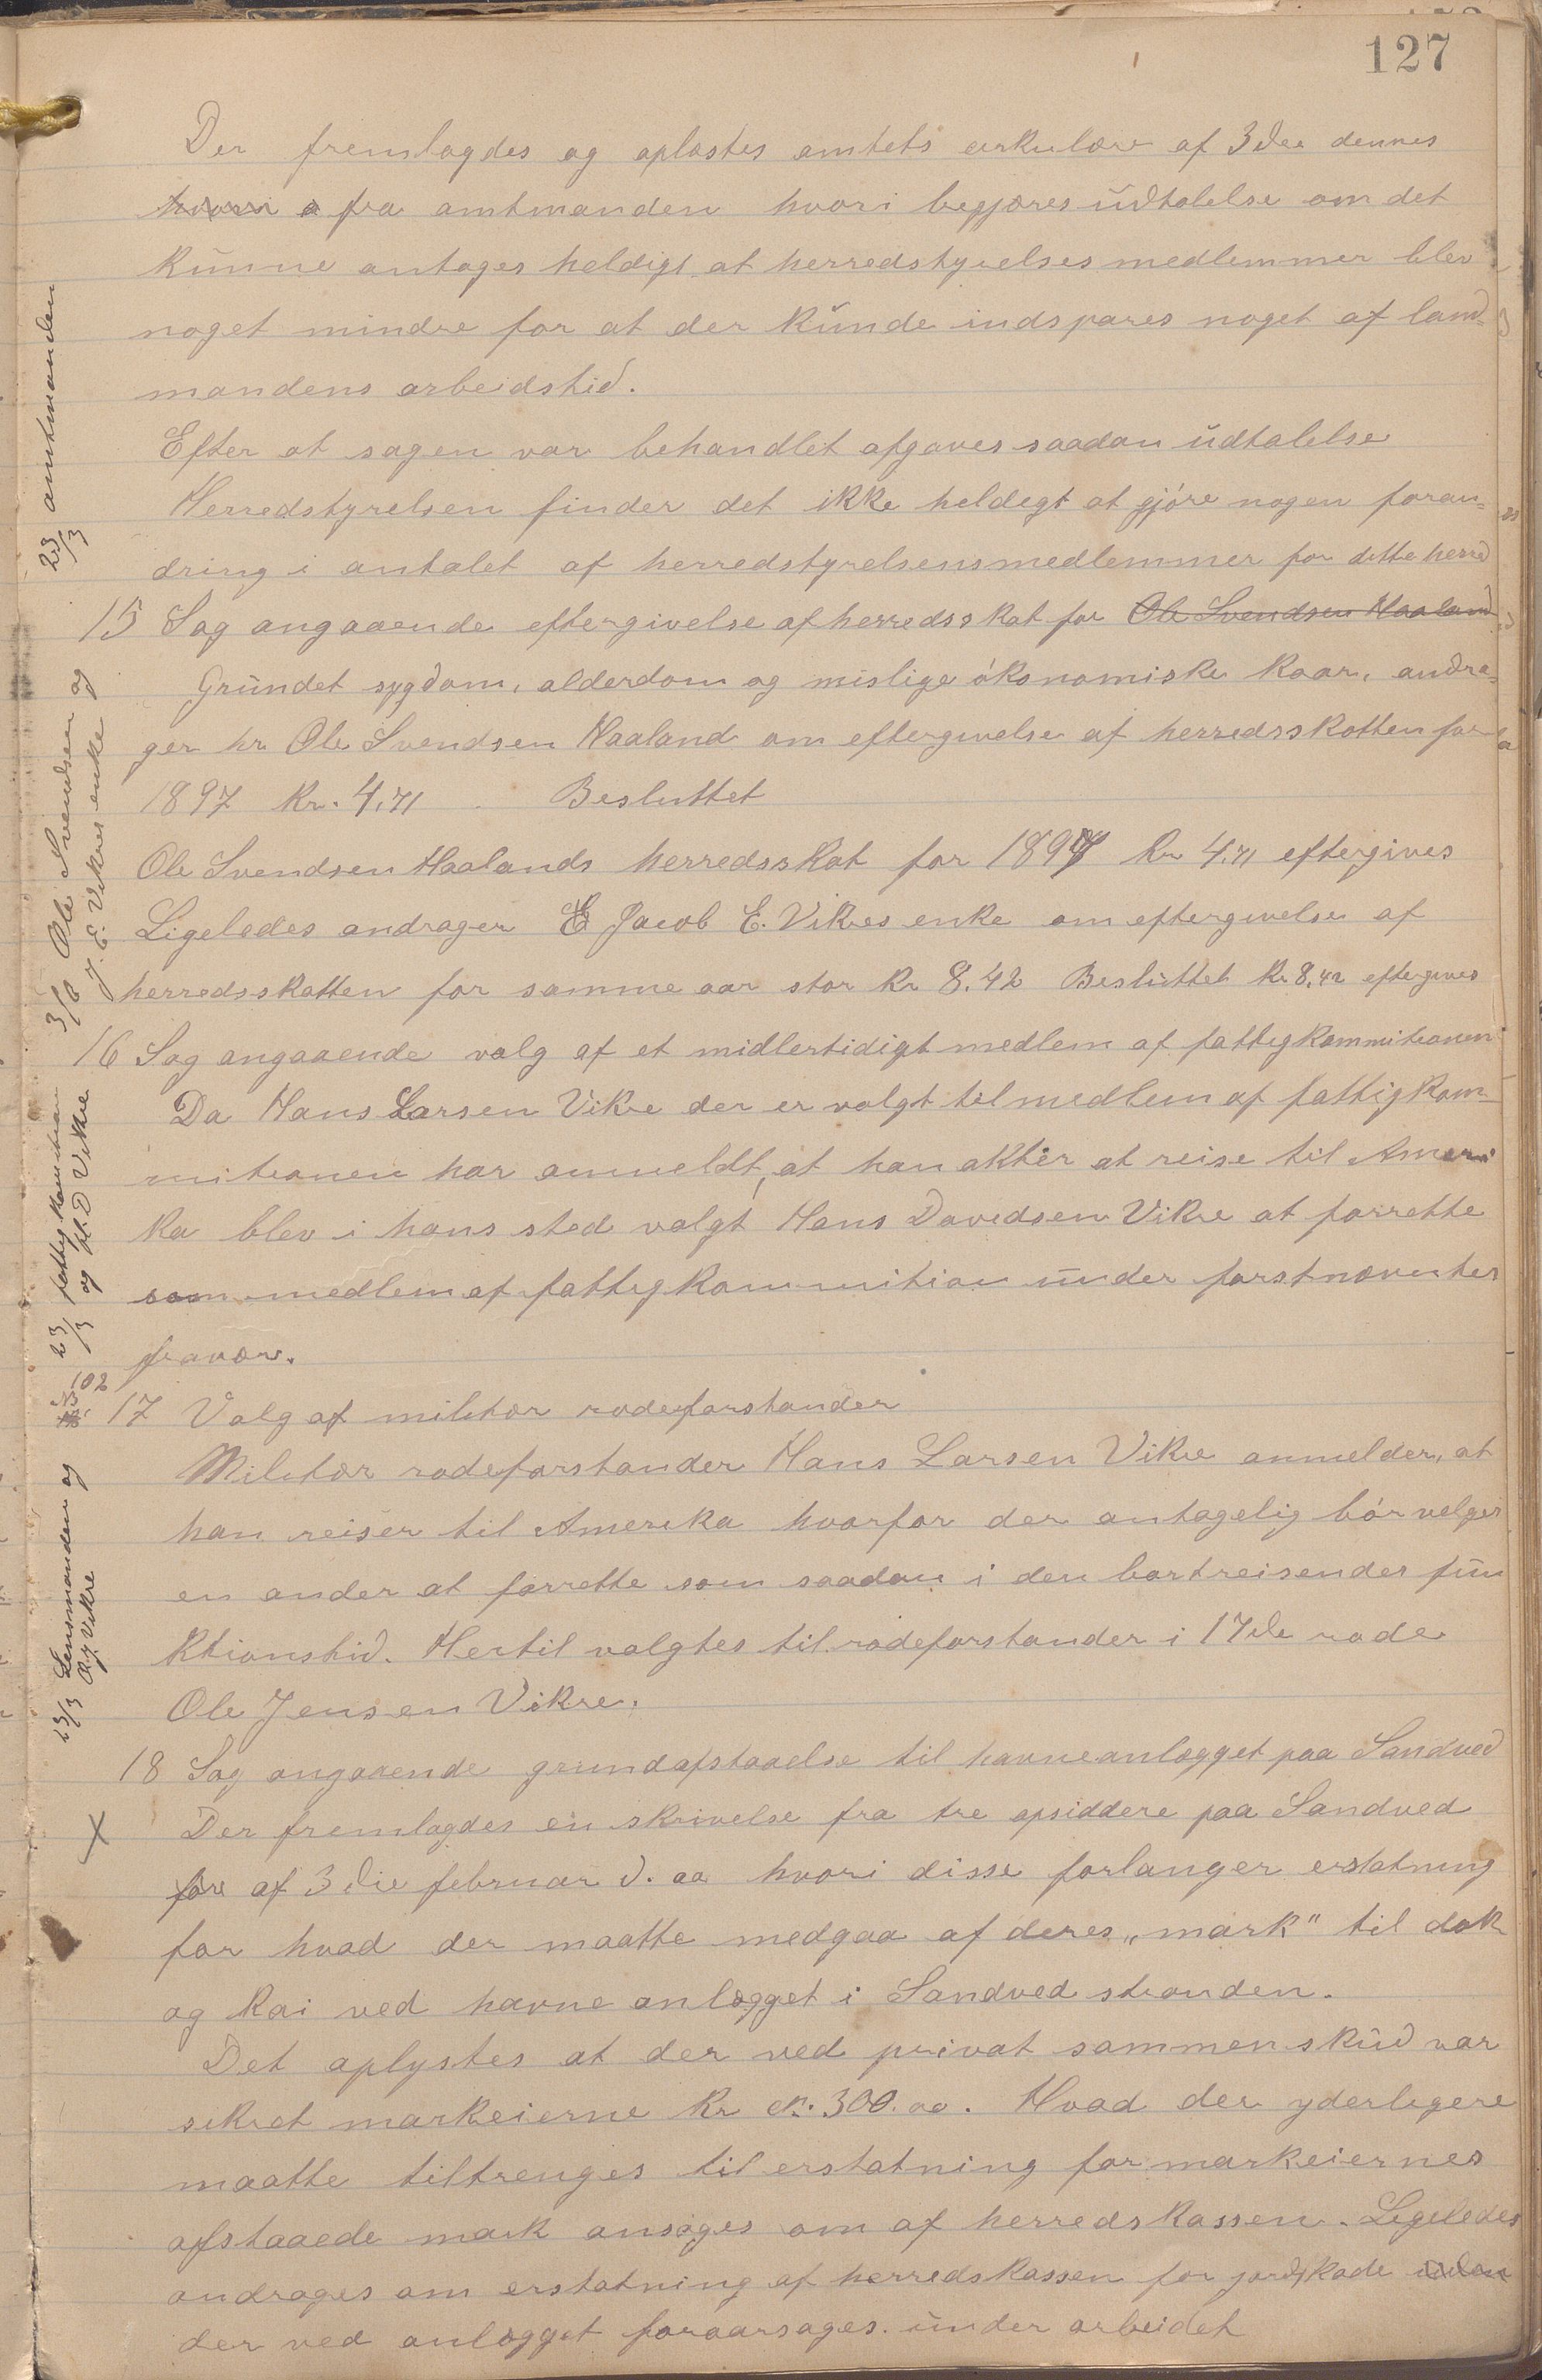 127
Der fremlagdes og oplæstes amtets cirkulære af 3die dennes
hvori a fra amtmanden hvori begjæres udtalelse om det
kunne antages heldigt at herredstyrelsesmedlemmer blev
noget mindre for at der kunde indspares noget af land-
mandens arbeidstid.
Efter at sagen var behandlet afgaves saadan udtalelse
Herredstyrelsen finder det ikke heldegt at gjóre nogen foran-
dring i antalet af herredstyrelsensmedlemmer for dette herred
23/3 amtmanden
15 Sag angaaende eftergivelse af herredsskat for Ole Svendsen Haaland
Grundet sygdom, alderdom og mislige ókonomiske kaar, andra-
ger hr Ole Svendsen Haaland om eftergivelse af herredsskatten for
1897 Kr. 4,71 Besluttet
Ole Svendsen Haalands herredsskat for 1897 Kr 4,71 eftergives
Ligeledes andrager E Jacob E. Vikres enke om eftergivelse af
herredsskatten for samme aar stor Kr 8.42 Besluttet Kr. 8,42 eftergives
3/6 Ole Svendsen og
J. E. Vikres enke
16 Sag angaaende valg af et midlertidigt medlem af fattigkommitionen
Da Hans Larsen Vikre der er valgt til medlem af fattigkom-
mitionen har anmeldt, at han akter at reise til Ameri
ka blev i hans sted valgt Hans Davidsen Vikre at forrette
som medlem af fattigkommition under forstnævntes
fravær.
23/3 fattigkomition
og H. D Vikre
102
17 Valg af militær rodeforstander
Militær rodeforstander Hans Larsen Vikre anmelder, at
han reiser til Amerika hvorfor der antagelig bór velges
en ander at forrette som saadan i den bortreisendes fun
ktionstid. Hertil valgtes til rodeforstander i 17de rode
Ole Jensen Vikre.
23/3 Lensmanden og
O. J. Vikre
18 Sag angaaende grundafstaaelse til havneanlægget paa Sandved
X Der fremlagdes en skrivelse fra tre opsiddere paa Sandved
fore af 3die februar d. aa hvori disse forlanger erstatning
for hvad der maatte medgaa af deres „mark" til dok
og kai ved havneanlægget i Sandvedstranden.
Det oplystes at der ved privat sammenskud var
sikret markeierne Kr ck. 300.00. Hvad der yderligere
maatte tiltrenges til erstatning for markeiernes
afstaaede mark ansøges om af herredskassen. Ligeledes
andrages om erstatning af herredskassen for jordskade uden
der ved anlægget foraarsages under arbeidet